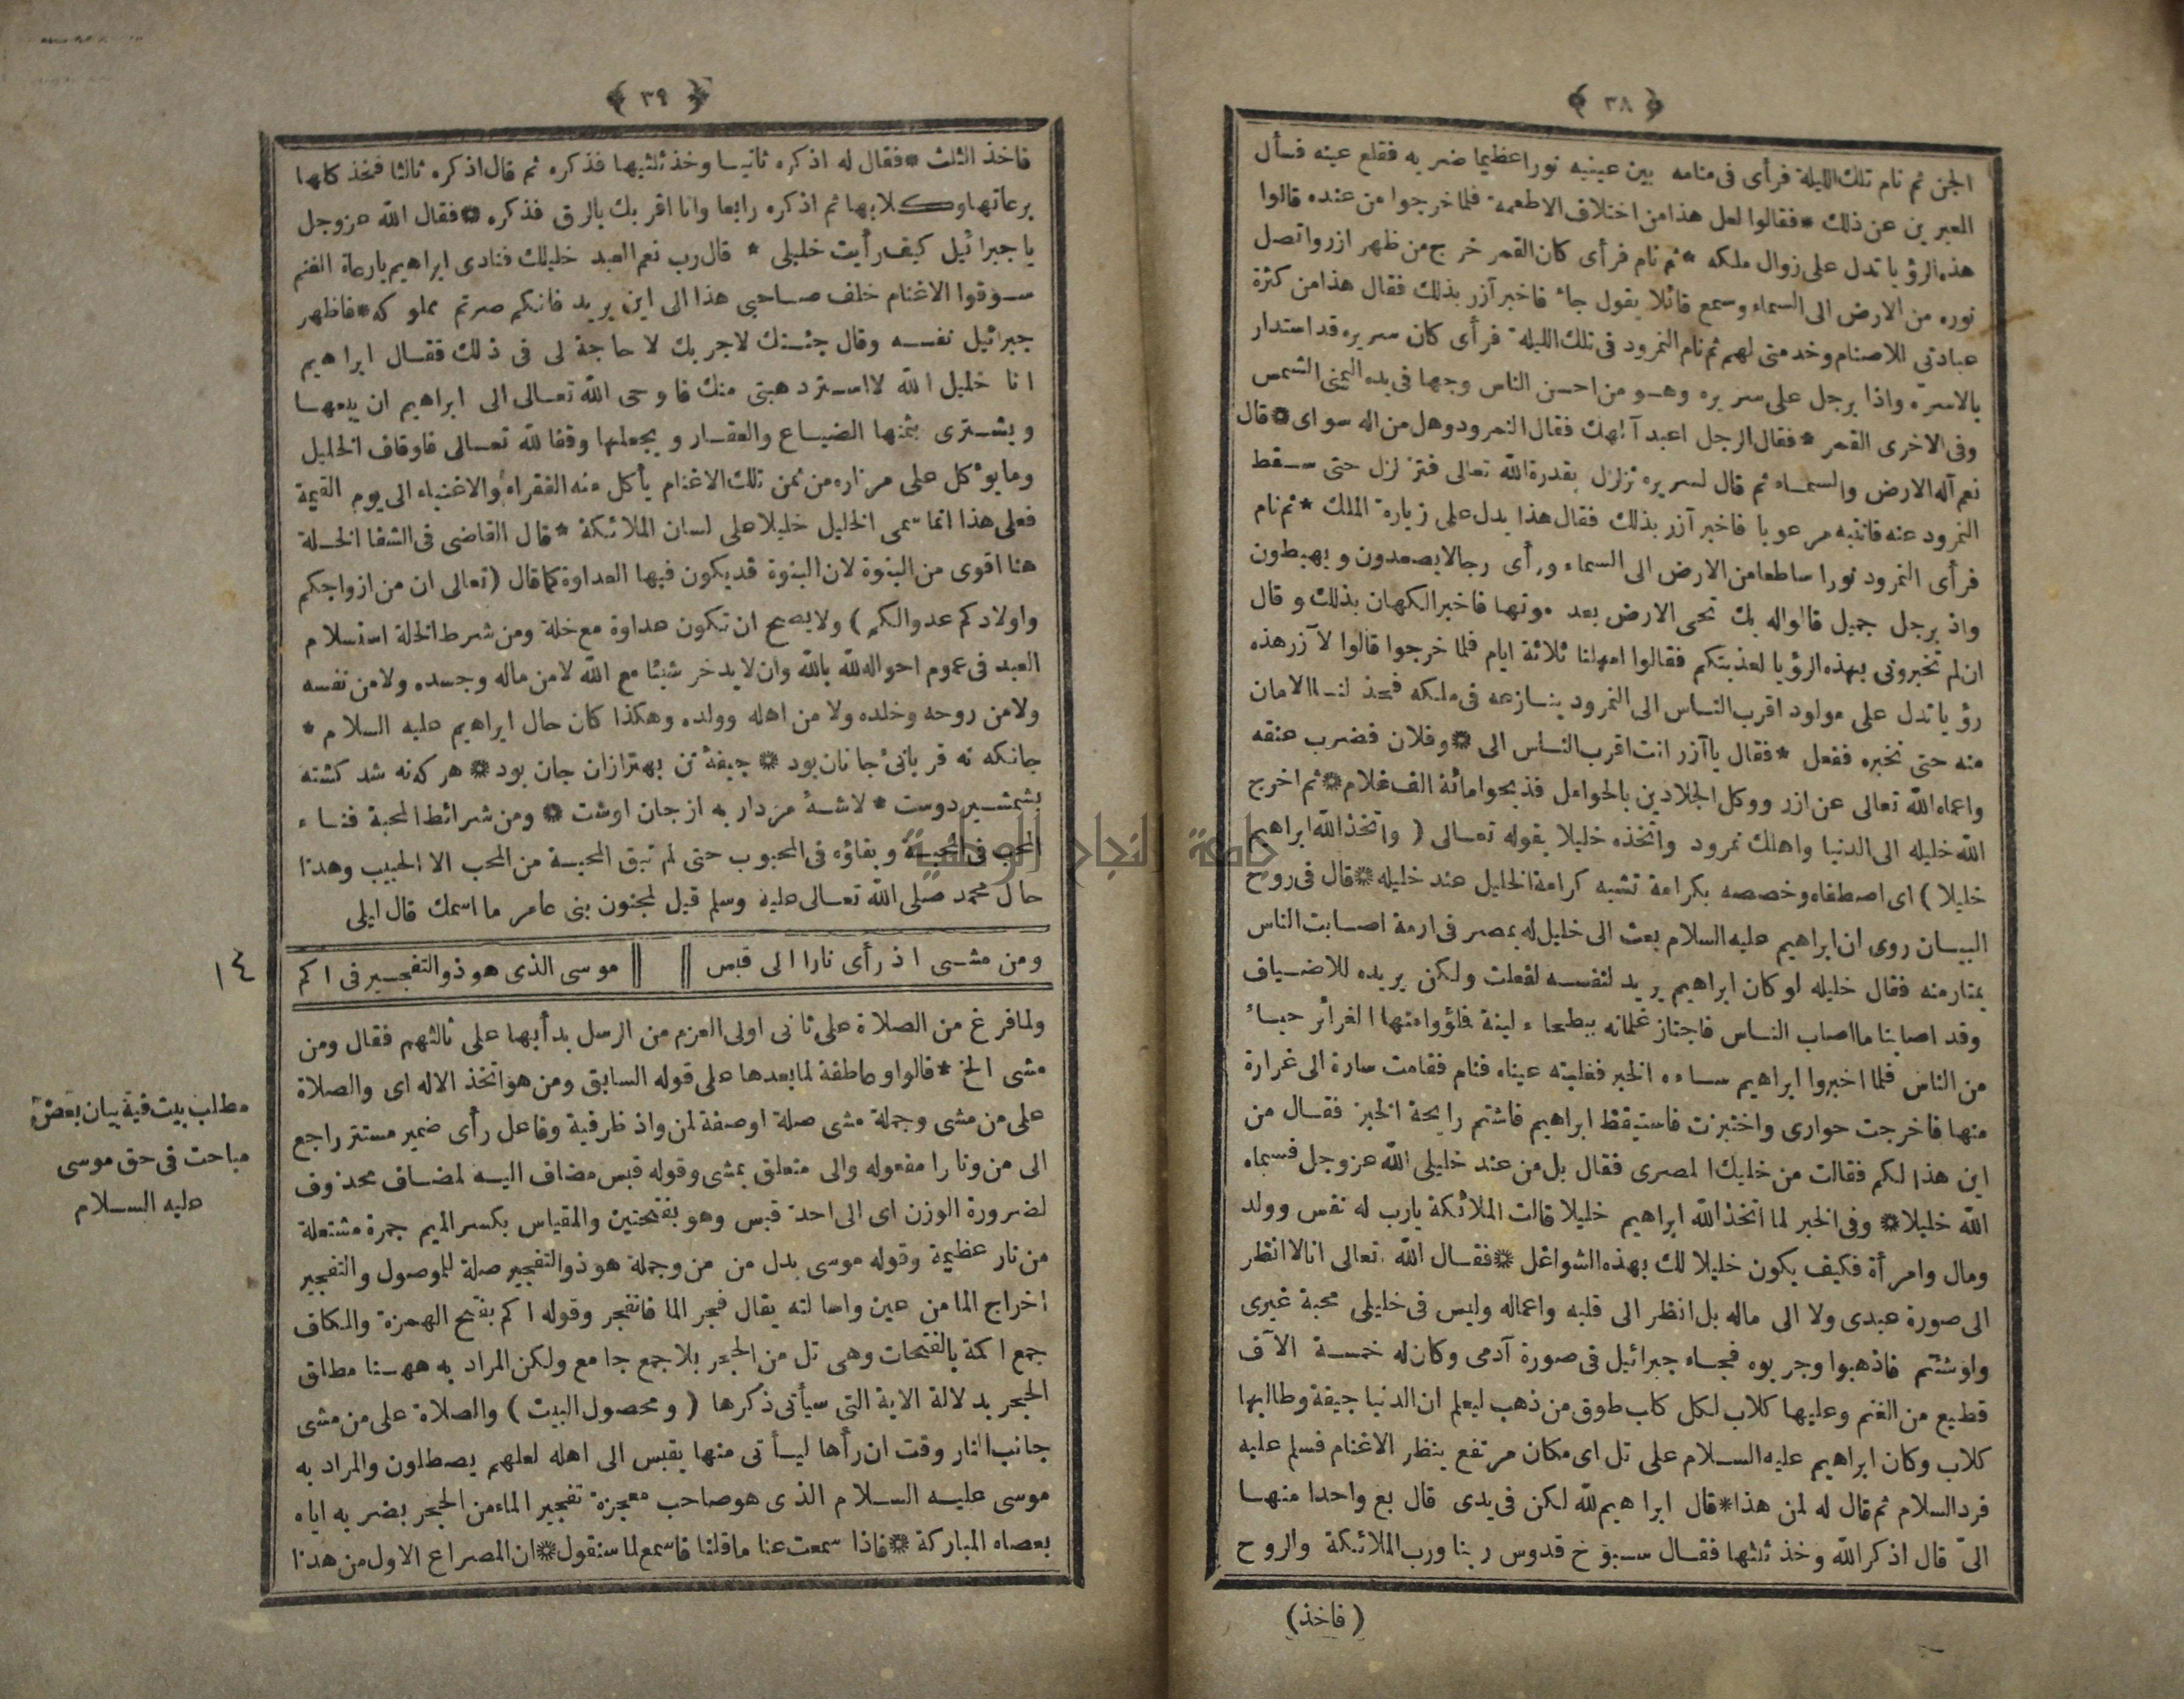 ﴿ ٣٨ ﴾
الجن ثم نام تلك الليلة فرأى فى منامه بين عينيه نورا عظيما ضربه فقلع عينه فسأل
المعبرين عن ذلك * فقالوا لعل هذا من اختلاف الاطعمة فلما خرجوا من عنده قالوا
هذه الرؤيا تدل على زوال ملكه * ثم نام فرأى كان القمر خرج من ظهر ازر واتصل
نوره من الارض الى السماء وسمع قائلا يقول جاء فاخبر آزر بذلك فقال هذا من كثرة
عبادتى للاصنام وخدمتى لهم ثم نام النمرود فى تلك الليلة فرأى كان سريره قد استدار
بالاسرّة واذا برجل على سريره وهو من احسن الناس وجها فى يده اليمنى الشمس
وفى الاخرى القمر * فقال الرجل اعبد آلهك فقال النمرود وهل من اله سواى * قال
نعم آله الارض والسماء ثم قال لسريره تزلزل بقدرة الله تعالى فتزلزل حتى سقط
النمرود عنه فانتبه مرعوبا فاخبر آزر بذلك فقال هذا يدل على زيارة الملك * ثم نام
فرأى النمرود نورا ساطعا من الارض الى السماء ورأى رجالا يصعدون ويهبطون
واذ برجل جميل قالوا له بك تحى الارض بعد موتها فاخبر الكهان بذلك وقال
ان لم تخبرونى بهذه الرؤيا لعذبتكم فقالوا امهلنا ثلاثة ايام فلما خرجوا قالوا لآزر هذه
رؤيا تدل على مولود اقرب الناس الى النمرود ينازعه فى ملكه فخذ لنا الامان
منه حتى نخبره ففعل * فقال ياآزر انت اقرب الناس الى * وفلان فضرب عنقه
واعماه الله تعالى عن ازر ووكل الجلادين بالحوامل فذبحوا مائة الف غلام * ثم اخرج
الله خليله الى الدنيا واهلك نمرود واتخذه خليلا بقوله تعالى ( واتخذ الله ابراهيم
خليلا ) اى اصطفاه وخصصه بكرامة تشبه كرامة الخليل عند خليله * قال فى روح
البيان روى ان ابراهيم عليه السلام بعث الى خليل له بمصر فى ازمة اصابت الناس
يمتار منه فقال خليله لو كان ابراهيم يريد لنفسه لفعلت ولكن يريده للاضياف
وقد اصابنا ما اصاب الناس فاجتاز غلمانه ببطحاء لينة فملؤوا منها الغرائر حياء
من الناس فلما اخبروا ابراهيم ساءه الخبر فغلبته عيناه فنام فقامت سارة الى غرارة
منها فاخرجت حوارى واختبزت فاستيقظ ابراهيم فاشتم رايحة الخبز فقال من
اين هذا لكم فقالت من خليلك المصرى فقال بل من عند خليلى الله عز وجل فسماه
الله خليلا * وفى الخبر لما اتخذ الله ابراهيم خليلا قالت الملائكة يارب له نفس وولد
ومال وامرأة فكيف يكون خليلا لك بهذه الشواغل * فقال الله تعالى انا لا انظر
الى صورة عبدى ولا الى ماله بل انظر الى قلبه واعماله وليس فى خليلى محبة غيرى
ولو شئتم فاذهبوا وجربوه فجاء جبرائيل فى صورة آدمى وكان له خمسة الآف
قطيع من الغنم وعليها كلاب لكل كلب طوق من ذهب ليعلم ان الدنيا جيفة وطالبها
كلاب وكان ابراهيم عليه السلام على تل اى مكان مرتفع ينظر الاغنام فسلم عليه
فرد السلام ثم قال له لمن هذا * قال ابراهيم لله لكن فى يدى قال بع واحدا منها
الىّ قال اذكر الله وخذ ثلثها فقال سبوح قدوس ربنا ورب الملائكة والروح
( فاخذ )
﴿ ٣٩ ﴾
فاخذ الثلث * فقال له اذكره ثانيا وخذ ثلثيها فذكره ثم قال اذكره ثالثا فخذ كلها
برعاتها وكلابها ثم اذكره رابعا وانا اقر بك بالرق فذكره * فقال الله عز وجل
ياجبرائيل كيف رأيت خليلى * قال رب نعم العبد خليلك فنادى ابراهيم يارعاة الغنم
سوقوا الاغنام خلف صاحبى هذا الى اين يريد فانكم صرتم مملوكه * فاظهر
جبرائيل نفسه وقال جئتك لاجربك لا حاجة لى فى ذلك فقال ابراهيم
انا خليل الله لا استرد هبتى منك فاوحى الله تعالى الى ابراهيم ان يبيعها
ويشترى بثمنها الضياع والعقار ويجعلها وقفا لله تعالى فاوقاف الخليل
وما يؤكل على مزاره من ثمن تلك الاغنام يأكل منه الفقراء والاغنياء الى يوم القيمة
فعلى هذا انما سمى الخليل خليلا على لسان الملائكة * قال القاضى فى الشفا الخلة
هنا اقوى من البنوة لان البنوة قد يكون فيها العداوة كما قال ( تعالى ان من ازواجكم
واولادكم عدوا لكم ) ولا يصح ان تكون عداوة مع خلة ومن شرط الخلة استسلام
العبد فى عموم احواله لله بالله وان لا يدخر شيئا مع الله لا من ماله وجسده ولا من نفسه
ولا من روحه وخلده ولا من اهله وولده وهكذا كان حال ابراهيم عليه السلام *
جانكه نه قربانئ جانان بود * جيفۀ تن بهتر ازان جان بود * هر كه نه شد كشته
بشمشير دوست * لاشۀ مردار به از جان اوست * ومن شرائط المحبة فناء
المحب فى المحبة وبقاؤه فى المحبوب حتى لم تبق المحبة من المحب الا الحبيب وهذا
حال محمد صلى الله تعالى عليه وسلم قيل لمجنون بنى عامر ما اسمك قال ليلى
ومن مشى اذ رأى نارا الى قبس || || موسى الذى هو ذو التفجير فى اكم
١٤
ولما فرغ من الصلاة على ثانى اولى العزم من الرسل بدأ بها على ثالثهم فقال ومن
مشى الخ * قالوا وعاطفة لما بعدها على قوله السابق ومن هو اتخذ الاله اى والصلاة
على من مشى وجملة مشى صلة او صفة لمن واذ ظرفية وفاعل رأى ضمير مستتر راجع
الى من ونارا مفعوله والى متعلق بمشى وقوله قبس مضاف اليه لمضاف محذوف
لضرورة الوزن اى الى احد قبس وهو بفتحتين والمقياس بكسر الميم جمرة مشتعلة
من نار عظيمة وقوله موسى بدل من من وجملة هو ذو التفجير صلة للموصول والتفجير
اخراج الما من عين واسالته يقال فجر الما فانفجر وقوله اكم بفتح الهمزة والكاف
جمع اكمة بالفتحات وهى تل من الحجر بلا جمع جامع ولكن المراد به ههنا مطلق
الحجر بدلالة الاية التى سيأتى ذكرها ( ومحصول البيت ) والصلاة على من مشى
جانب النار وقت ان رأها ليأتى منها بقبس الى اهله لعلهم يصطلون والمراد به
موسى عليه السلام الذى هو صاحب معجزة تفجير الماء من الحجر بضربه اياه
بعصاه المباركة * فاذا سمعت عنا ما قلنا فاسمع لما سنقول * ان المصراع الاول من هذا
مطلب بيت فيه بيان بعض
مباحث فى حق موسى
عليه السلام
جامعة النجاح الوطنية